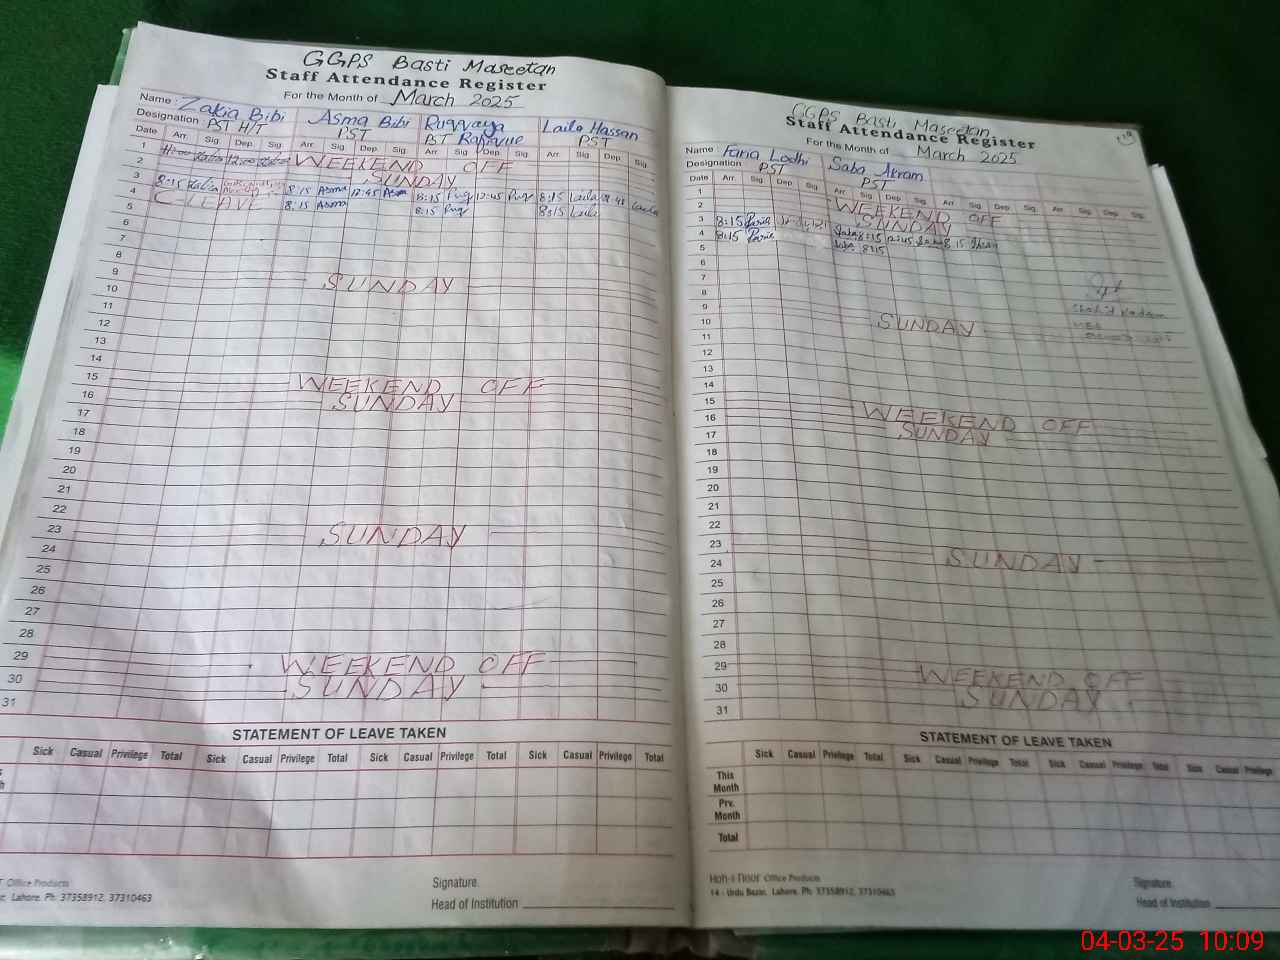 GGPS Basti Maseetan
Staff Attendance Register
For the Month of March 2025
Name: Zakia Bibi Asma Bibi Ruqyaya Laila Hassan
Designation PST H/T PST PST PST
Date Arr Sig Dep Sig Arr Sig Dep Sig Arr Sig Dep Sig Arr Sig Dep Sig
1 WEEKEND OFF
2 SUNDAY
3 8:15 Zakia 8:15 Asma 12:45 Asma 8:15 Ruq 12:45 Ruq 8:15 Laila Laila
4 C-LEAVE 8:15 Asma 8:15 Ruq 8:15 Laila
5
6
7
8
9 SUNDAY
10
11
12
13
14
15 WEEKEND OFF
16 SUNDAY
17
18
19
20
21
22
23 SUNDAY
24
25
26
27
28
29 WEEKEND OFF
30 SUNDAY
31
STATEMENT OF LEAVE TAKEN
Sick Casual Privilege Total Sick Casual Privilege Total Sick Casual Privilege Total Sick Casual Privilege Total
Office Products
Lahore. Ph: 37358912, 37310463
Signature.
Head of Institution
GGPS Basti Maseetan
Staff Attendance Register
For the Month of March 2025
Name: Faria Lodhi Saba Akram
Designation PST PST
Date Arr Sig Dep Sig Arr Sig Dep Sig Arr Sig Dep Sig Arr Sig Dep Sig
1 WEEKEND OFF
2 SUNDAY
3 8:15 Faria Saba 8:15 12:45 Saba 8:15
4 8:15 Faria Saba 8:15
5
6
7
8
9 SUNDAY
10
11
12
13
14
15 WEEKEND OFF
16 SUNDAY
17
18
19
20
21
22
23 SUNDAY
24
25
26
27
28
29 WEEKEND OFF
30 SUNDAY
31
STATEMENT OF LEAVE TAKEN
Sick Casual Privilege Total Sick Casual Privilege Total Sick Casual Privilege Total Sick Casual Privilege
This Month
Prv. Month
Total
Hoh-i-Noor Office Products
14 - Urdu Bazar, Lahore. Ph: 37358912, 37310463
Signature.
Head of Institution
04-03-25 10:09